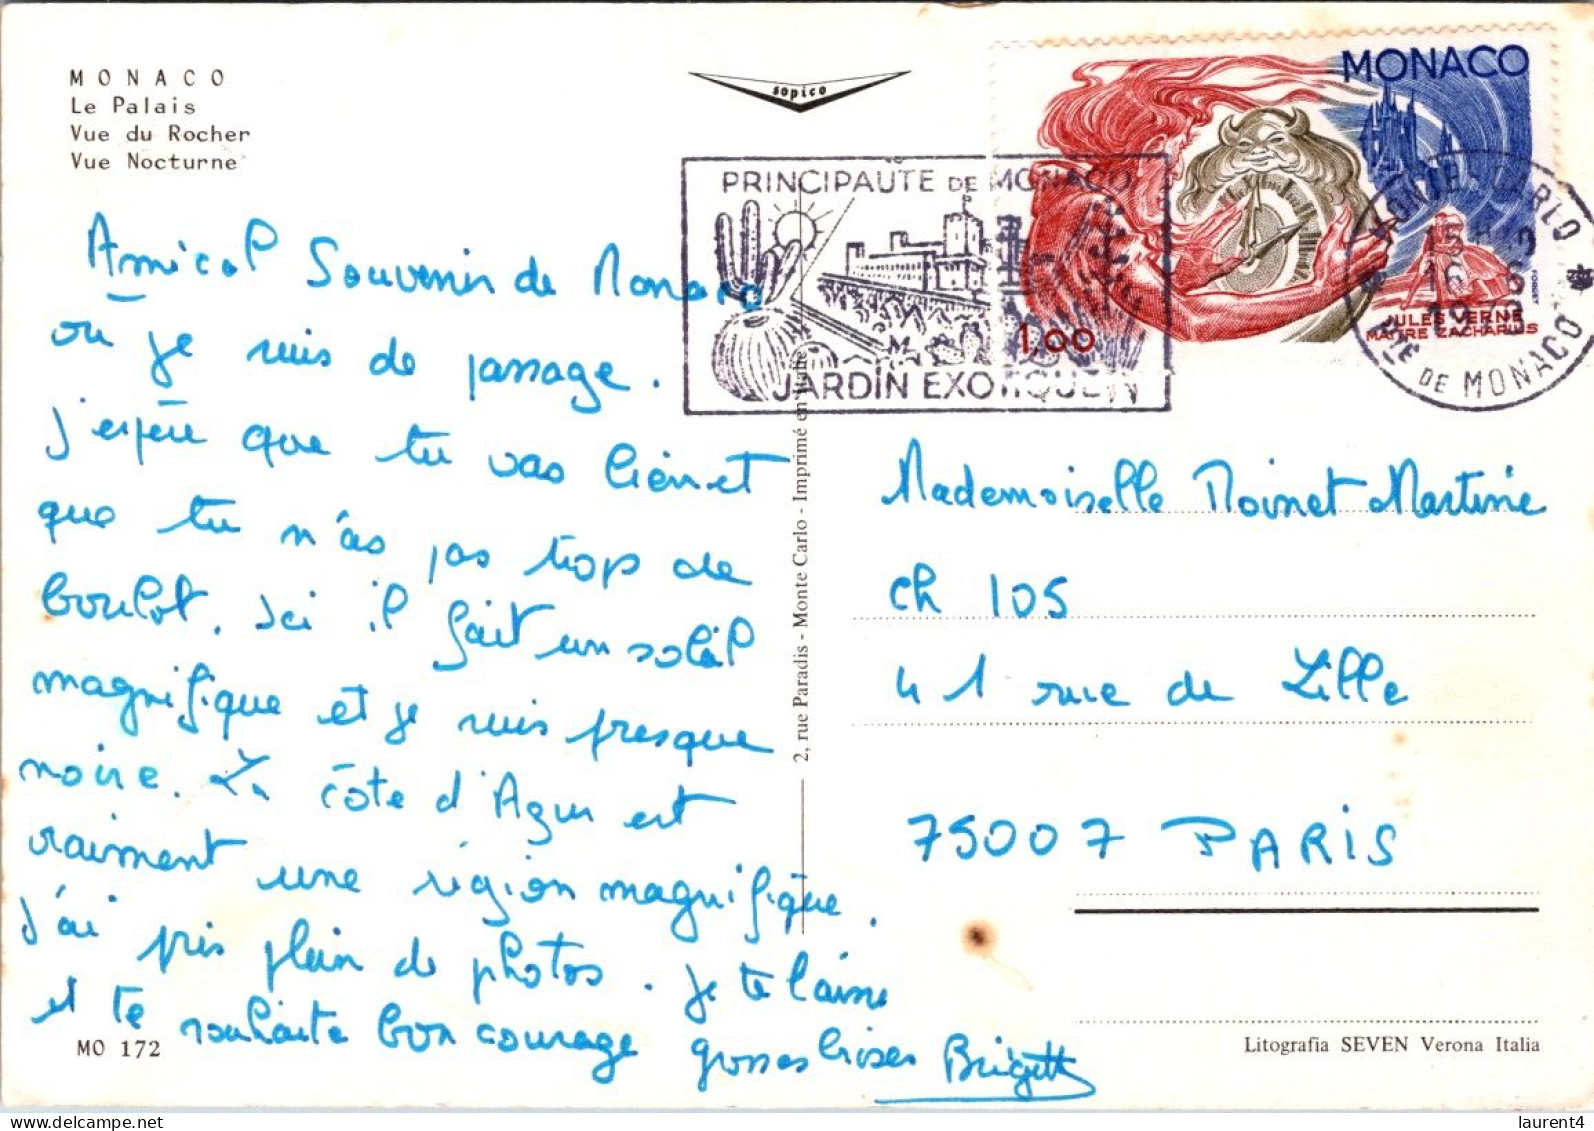 MONACO
Le Palais
Vue du Rocher
Vue Nocturne
sopico
MONACO
1,00
JULES VERNE
MAITRE ZACHARIUS
FORGET
PRINCIPAUTE DE MONACO
JARDIN EXOTIQUE
MONTE-CARLO
16 6
DE MONACO
Amical Souvenir de Monaco
où je suis de passage.
j'espère que tu vas bien et
que tu n'as pas trop de
boulot. Ici il fait un soleil
magnifique et je suis presque
noire. La côte d'Azur est
vraiment une région magnifique.
j'ai pris plein de photos. je te laisse
et te souhaite bon courage grosses bises Brigitte
2, rue Paradis - Monte Carlo - Imprimé en Italie
Mademoiselle Noinet Martine
ch 105
41 rue de Lille
75007 PARIS
MO 172
Litografia SEVEN Verona Italia
delcampe.net
laurent4